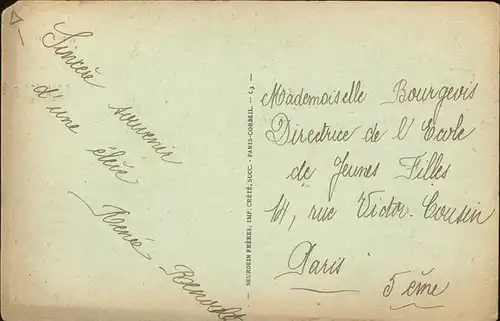 Sincère souvenir
d'une élève
Renée Benoist
SEURDEIN FRÈRES, IMP. CRÉTÉ, SUCC. - PARIS-CORBEIL
Mademoiselle Bourgeois
Directrice de l'Ecole
de Jeunes Filles
14, rue Victor-Cousin
Paris
5ème